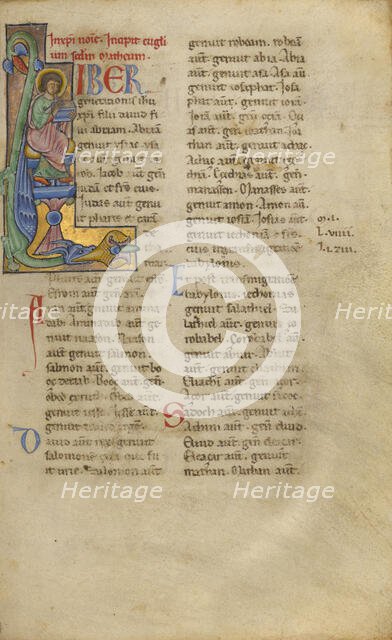 In xp̄i noīe. Incipit euḡli
um sc̄dm matheum.
LIBER
generationis ihū
xp̄i filii david fi
lii abraam. Abraā
genuit ysaac.
iacob. Iacob aut̄ gen̄
iudā et fr̄s eius.
Iudas aut̄ genuit
phares et çarā
de thamar.
Phares aut̄ genuit
Esrom aut̄ genuit
genuit naason. Naason
aut̄ genuit salmon.
salmon aut̄ genuit
booç de raab. Booç aut̄ gen̄
obed
genuit iesse. Iesse aut̄
genuit david regem.
David aut̄ rex genuit
salomonem ex ea que fu
it urie. Salomon aut̄
genuit roboam. roboā
aut̄ genuit abia. Abia
aut̄ genuit asa. Asa
genuit iosaphat. Iosa
phat aut̄ genuit iorā.
Iorā aut̄ gen̄ oçiā. Oçi
as aut̄ gen̄ ioathan. Ioa
than aut̄ genuit achaç.
Achaç aut̄
Eçechias aut̄ gen̄
manassen. Manasses aut̄
genuit amon. Amon aut̄
genuit iosiā. Iosias aut̄
genuit iechoniā et fr̄s
eius in transmigrationē
babylonis.
Et post transmigrationē
babylonis. iechonias
genuit salathiel. Sala
thiel aut̄ genuit ço
robabel. Çorobabel aut̄
genuit abiut. Abiut aut̄
genuit
Eliachi aut̄ genuit açor
Açor aut̄ genuit sadoc.
Sadoch aut̄ genuit
Achim aut̄ gen̄ eliud
Eliud aut̄ gen̄ eleaçar.
Eleaçar aut̄ genuit
mathan. Mathan aut̄.
m. i.
L. viiii.
I. xiii.
Heritage
Heritage
Heritage
Heritage
Heritage
Heritage
Heritage
Heritage